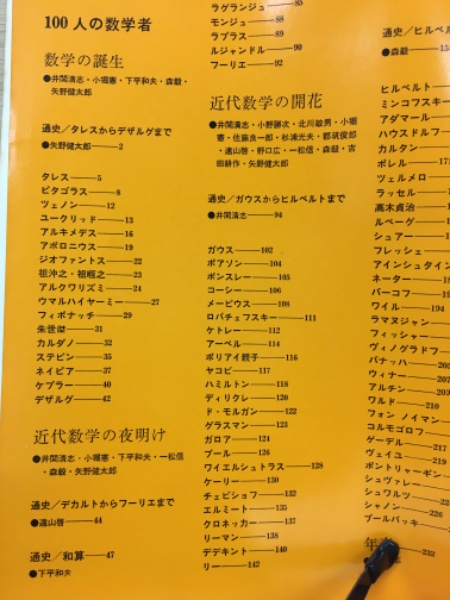 100人の数学者
数学の誕生
●井関清志・小堀憲・下平和夫・森毅・
矢野健太郎
通史/タレスからデザルグまで
●矢野健太郎——2
タレス——5
ピタゴラス——8
ツェノン——12
ユークリッド——13
アルキメデス——16
アポロニウス——19
ジオファントス——22
祖沖之・祖暅之——23
アルクワリズミ——24
ウマルハイヤーミー——27
フィボナッチ——29
朱世傑——31
カルダノ——32
ステビン——35
ネイピア——37
ケプラー——40
デザルグ——42
近代数学の夜明け
●井関清志・小堀憲・下平和夫・一松信
・森毅・矢野健太郎
通史/デカルトからフーリエまで
●遠山啓——44
通史/和算——47
●下平和夫
ラグランジュ——85
モンジュ——88
ラプラス——89
ルジャンドル——90
フーリエ——92
近代数学の開花
●井関清志・小野勝次・北川敏男・小堀
憲・佐藤良一郎・杉浦光夫・都筑俊郎
・遠山啓・野口広・一松信・森毅・吉
田耕作・矢野健太郎
通史/ガウスからヒルベルトまで
●井関清志——94
ガウス——102
ポアソン——104
ポンスレー——105
コーシー——106
メービウス——108
ロバチェフスキー——111
ケトレー——112
アーベル——114
ボリアイ親子——116
ヤコビ——117
ハミルトン——118
ディリクレ——120
ド・モルガン——122
グラスマン——123
ガロア——124
ブール——126
ワイエルシュトラス——128
ケーリー——130
チェビショフ——132
エルミート——135
クロネッカー——137
リーマン——138
デデキント——140
リー——142
通史/ヒルベル
●森毅——15
ヒルベルト——
ミンコフスキー
アダマール——
ハウスドルフ—
カルタン——
ボレル——171
ツェルメロ——
ラッセル——
高木貞治——
ルベーグ——
シュアー——
フレッシェ——
アインシュタイン
ネーター——
バーコフ——19
ワイル——194
ラマヌジャン—
フィッシャー—
ヴィノグラドフ—
バナッハ——205
ウィナー——207
アルチン——
ワルド——210
フォン ノイマン—
コルモゴロフ—
ゲーデル——217
ヴェイユ——219
ポントリャーギン—
シュヴァレー—
シュワルツ——
シャノン——226
ブールバッキ—
——232